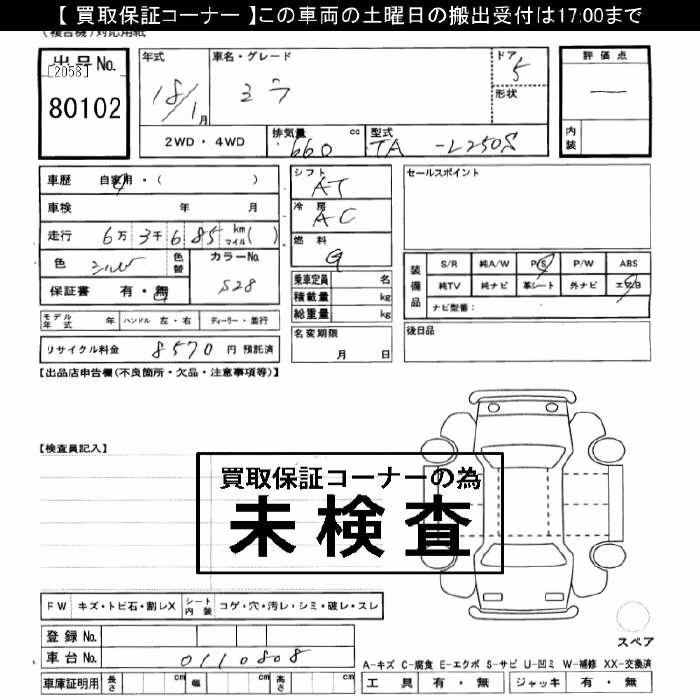 【 買取保証コーナー 】この車両の土曜日の搬出受付は17:00まで
(複合機)対応用紙
出品No.
[2058]
80102
年式
18/1月
車名・グレード
ミラ
ドア
5
形状
評価点
—
内装
2WD・4WD
排気量 cc
660
型式
TA -L250S
車歴 自家用・( )
車検 年 月
走行 6万 3千 6 85 km マイル( )
色 シルバ
色替
カラーNo.
S28
保証書 有・無
シフト
AT
冷房
AC
燃料
G
乗車定員 名
積載量 kg
総重量 kg
セールスポイント
装備品
S/R 純A/W P/S P/W ABS
純TV 純ナビ 革シート 外ナビ エアB
ナビ型番:
モデル年式 年 ハンドル 左・右 ディーラー・並行
リサイクル料金 8570 円 預託済
名変期限
月 日
後日品
【出品店申告欄(不良箇所・欠品・注意事項等)】
【検査員記入】
買取保証コーナーの為
未検査
FW キズ・トビ石・割レX シート内装 コゲ・穴・汚レ・シミ・破レ・スレ
登録No.
車台No. 0110808
車庫証明用 長さ cm 幅 cm 高さ cm
スペア
A-キズ C-腐食 E-エクボ S-サビ U-凹ミ W-補修 XX-交換済
工具 有・無 ジャッキ 有・無